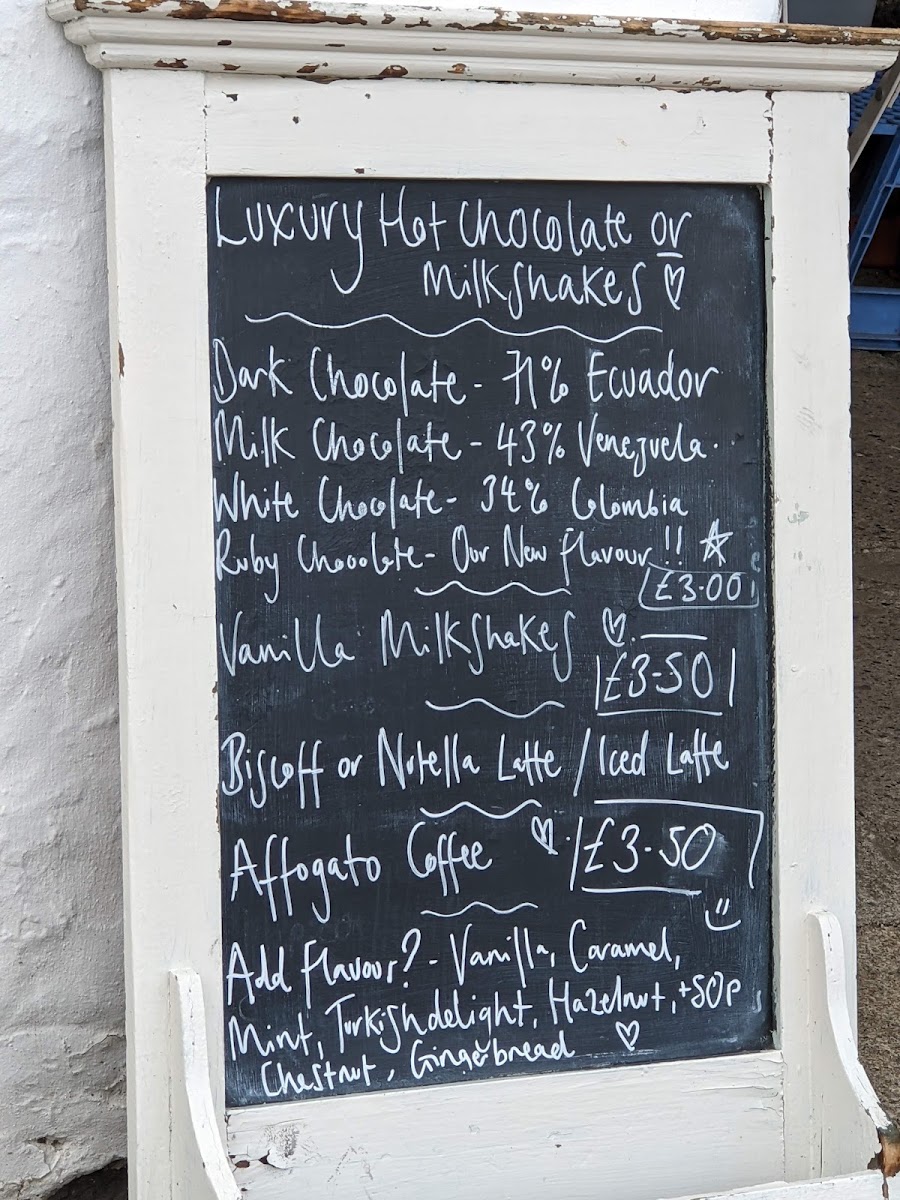 Luxury Hot Chocolate or
Milkshakes ♡
Dark Chocolate - 71% Ecuador
Milk Chocolate - 43% Venezuela.
White Chocolate - 34% Colombia
Ruby Chocolate - Our New Flavour!! ☆
£3.00
Vanilla Milkshakes ♡
£3.50
Biscoff or Nutella Latte / Iced Latte
Affogato Coffee ♡ £3.50
Add Flavour? - Vanilla, Caramel,
Mint, Turkishdelight, Hazelnut, +50p
Chestnut, Gingerbread ♡